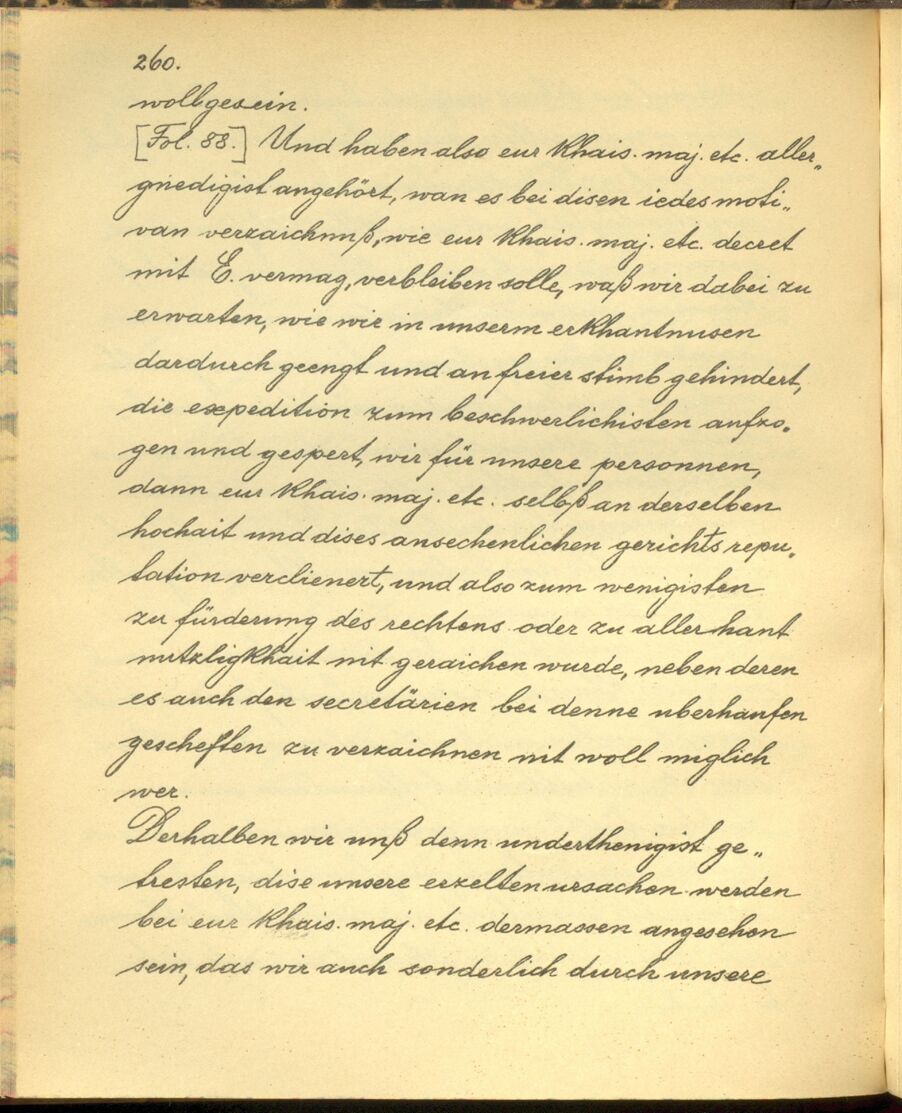 260.
wollgesein.
[Fol. 88.] Und haben also eur Khais. maj. etc. aller„
gnedigist angehört, wan es bei disen iedes moti„
van verzaichnuß, wie eur Khais. maj. etc. decret
mit E. vermag, verbleiben solle, waß wir dabei zu
erwarten, wie wir in unserm erkhantnusen
dardurch geengt und an freier stimb gehindert,
die expedition zum beschwerlichisten aufzo„
gen und gespert, wir für unsere personnen,
dann eur Khais. maj. etc. selbß an derselben
hochait und dises ansechenlichen gerichts repu„
tation verclienert, und also zum wenigisten
zu fürderung des rechtens oder zu aller hant
nutzligkhait nit geraichen wurde, neben deren
es auch den secretärien bei denne uberhaufen
gescheften zu verzaichnen nit woll miglich
wer.
Derhalben wir unß denn underthenigist ge„
tresten, dise unsere erzelten ursachen werden
bei eur Khais. maj. etc. dermassen angesehen
sein, das wir auch sonderlich durch unsere